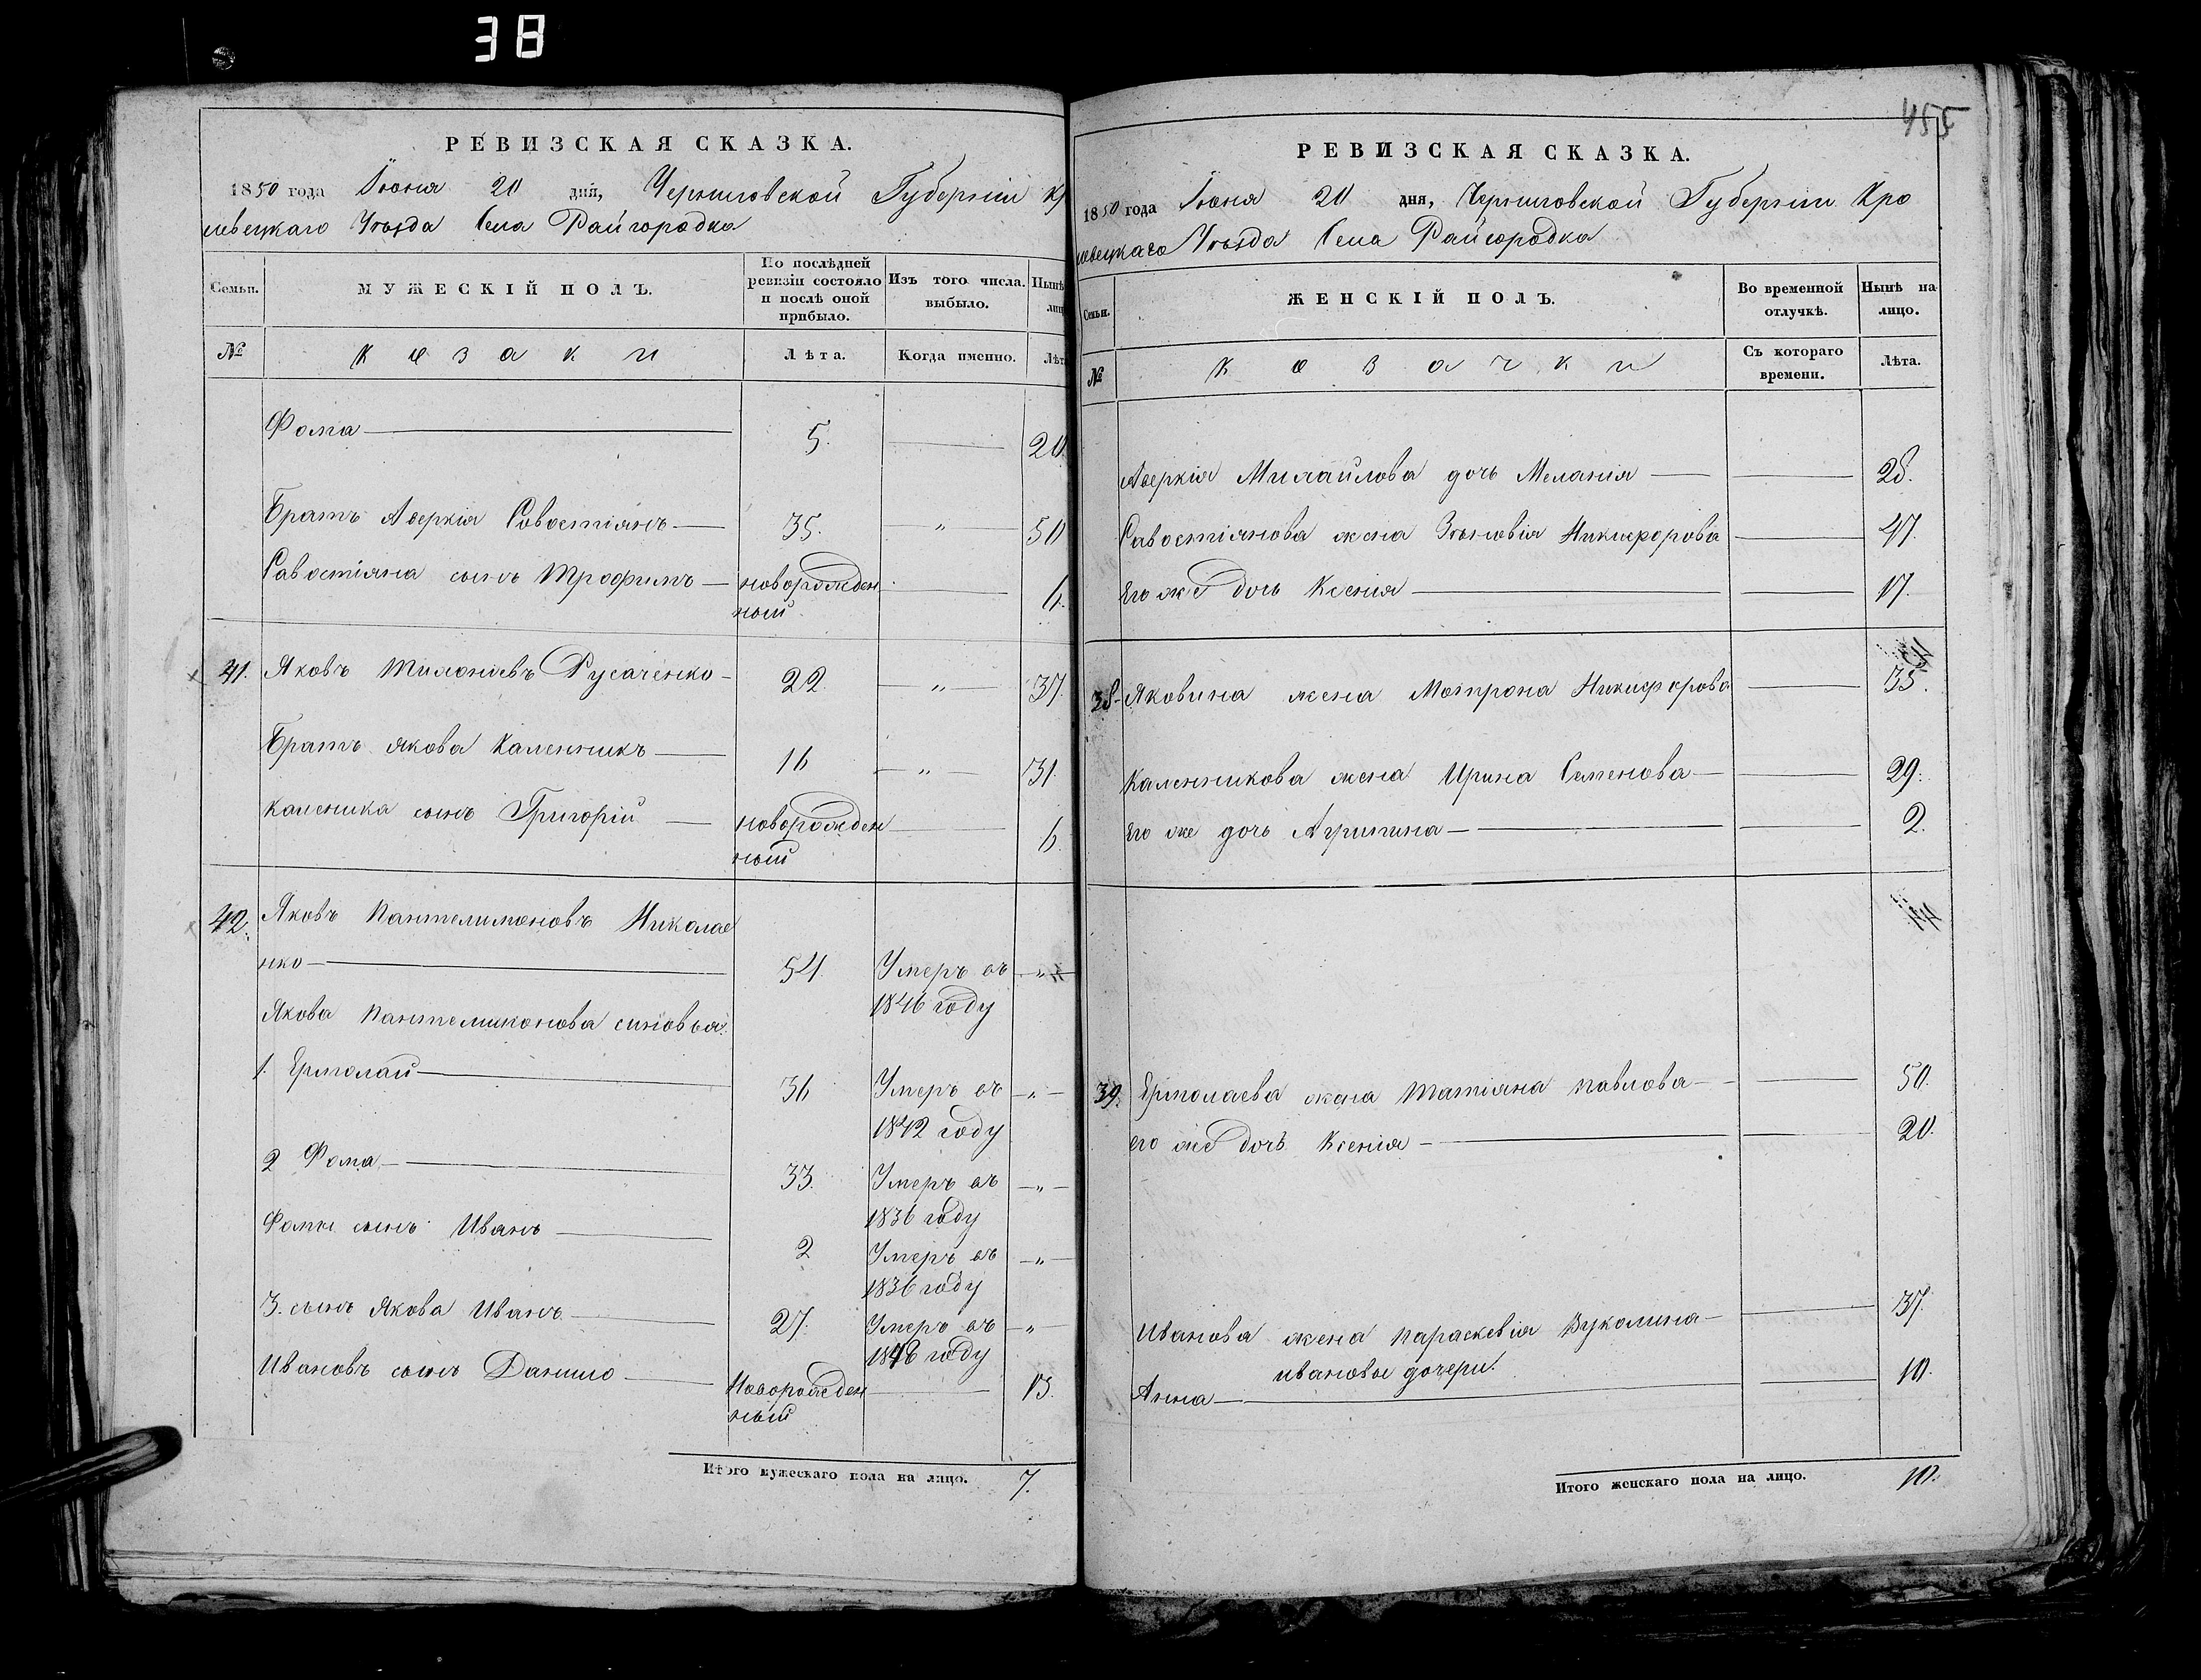 38
РЕВИЗСКАЯ СКАЗКА.
1850 года Іюня 20 дня, Черниговской Губерніи Кро
левецкаго Уѣзда Села Райгородка
Семьи.
МУЖЕСКІЙ ПОЛЪ.
По послѣдней ревизіи состояло и послѣ оной прибыло.
Изъ того числа выбыло.
Нынѣ лиц
№
Козаки
Лѣта.
Когда именно.
Лѣт
Фома 5. 20.
Братъ Аверкія Савостіянъ 35. " 50
Савостіяна сынъ Трофимъ новорожден
ный 6.
41. Яковъ Тимофіевъ Русаченко 22 " 37.
Братъ Якова Каленникъ 16 " 31.
Каленика сынъ Григорій новорожден
ный 6.
42. Яковъ Пантелимоновъ Николае
нко 54. Умеръ въ "
1846 году
Якова Пантелимонова синовья:
1. Ермолай 36 Умеръ въ "
1842 году
2 Фома 33. Умеръ въ "
1836 году
Фомы сынъ Иванъ 2 Умеръ въ "
1836 году
3. сынъ Якова Иванъ 27. Умеръ въ "
1848 году
Ивановъ сынъ Данило Новорожден
ный 13.
Итого мужескаго пола на лицо. 7.
455
РЕВИЗСКАЯ СКАЗКА.
1850 года Іюня 20 дня, Черниговской Губерніи Кро
левецкаго Уѣзда Села Райгородка
Семьи.
ЖЕНСКІЙ ПОЛЪ.
Во временной отлучкѣ.
Нынѣ на лицо.
№
Козачки
Съ котораго времени.
Лѣта.
Аверкія Михайлова дочь Меланія 28.
Савостіянова жена Зѣновія Никифорова 47.
Его же дочь Ксенія 17.
38. Яковина жена Мотрона Никифорова 35.
Каленникова жена Ирина Семенова 29.
Его же дочь Агрипина 2.
39. Ермолаева жена Татіяна Павлова 50.
его же дочь Ксенія 20.
Иванова жена Параскевія Вуколина 37.
ивановы дочери:
Анна 10.
Итого женскаго пола на лицо. 10.